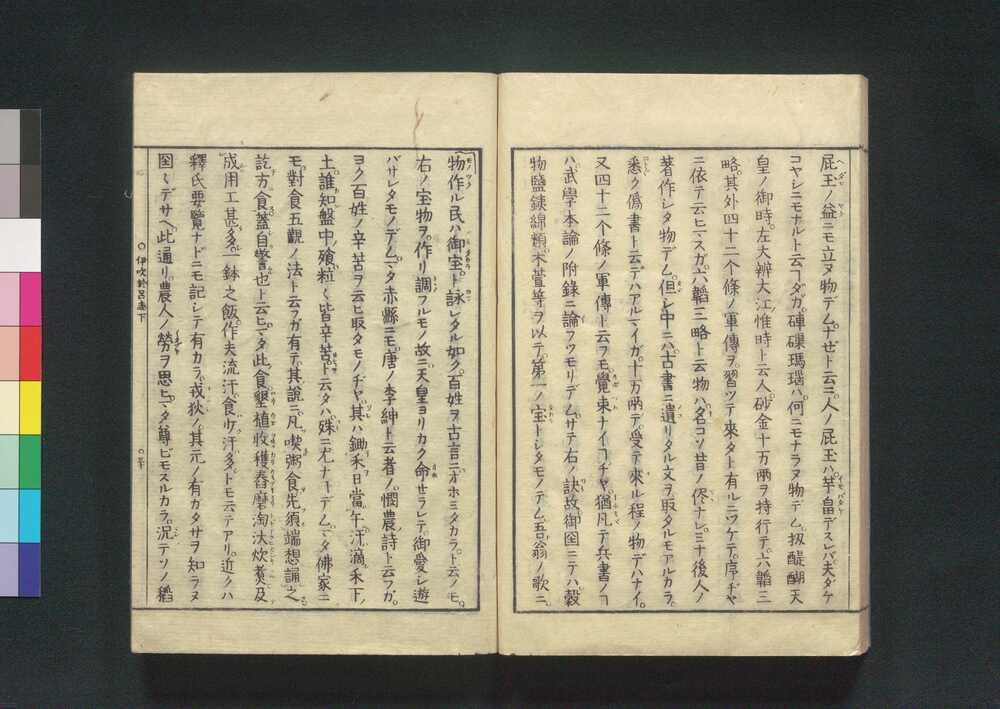 屁玉ノ益ニモ立ヌ物デム。ナゼト云ニ。人ノ屁玉ハ。芋畠デスレバ。夫ダケ
コヤシニモナルト云ヿダガ。硨磲瑪瑙ハ。何ニモナラヌ物デム。扨醍醐天
皇ノ御時。左大辨大江ノ惟時ト云人。砂金十万兩ヲ持行テ。六韜三
略。其外四十二个條ノ軍傳ヲ。習ツテ來タト有ルニツケテ。序ヂヤ
ニ依テ云ヒマスガ。六韜三略ト云物ハ。名コソ昔ノ侭ナレ。ミナ後人ノ
著作シタ物デム。但シ中ニハ。古書ニ遺リタル文ヲ取タルモアルカラ。
悉ク僞書ト云デハアルマイガ。十万兩デ。受テ來ル程ノ物デハナイ。
又四十二个條ノ軍傳ト云フモ。覺束ナイヿヂヤ。猶凡テ兵書ノヿ
ハ。武學本論ノ附録ニ論フツモリデム。サテ右ノ訣故。御國ニテハ。穀
物鹽鐵綿類。木萱等ヲ以テ。第一ノ宝トシタモノデム。吾翁ノ歌ニ。
物作ル民ハ御宝ト詠レタル如ク。百姓ヲ古言ニ。オホミタカラ。ト云ノモ。
右ノ宝物ヲ。作リ調フルモノ故ニ。天皇ヨリカク命セラレテ。御愛シ遊
バサレタモノデム。マタ赤縣ニモ。唐ノ李紳ト云者ノ。憫農詩ト云フガ。
ヨク百姓ノ辛苦ヲ云ヒ取タモノヂヤ。其ハ鋤禾日當午。汗滴禾下ノ
土。誰知盤中ノ飱。粒〻皆辛苦。ト云タハ。殊ニ尤ナヿデム。マタ佛家ニ
モ。對食五觀ノ法ト云フガ有テ。其說ニ。凡喫粥食。先須端想誦之
訖方食。蓋自警也ト云ヒ。マタ此食墾植收穫舂磨淘汰炊煮。及
成用工甚多。一鉢之飯。作夫流汗。食少汗多。トモ云テアリ。近クハ
釋氏要覽ナドニモ記シテ有カラ。戎狄ノ。其元ノ有ガタサヲ知ラヌ
國〻デサヘ。此通リ。農人ノ勞ヲ思ヒ。マタ尊ビモスルカラ。况テソノ稻
伊吹於呂志下